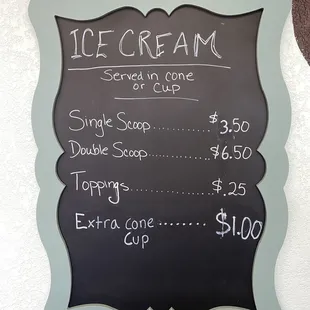 ICE CREAM
Served in cone
or cup
Single Scoop............ $3.50
Double Scoop............... $6.50
Toppings.................. $.25
Extra cone ........ $1.00
Cup